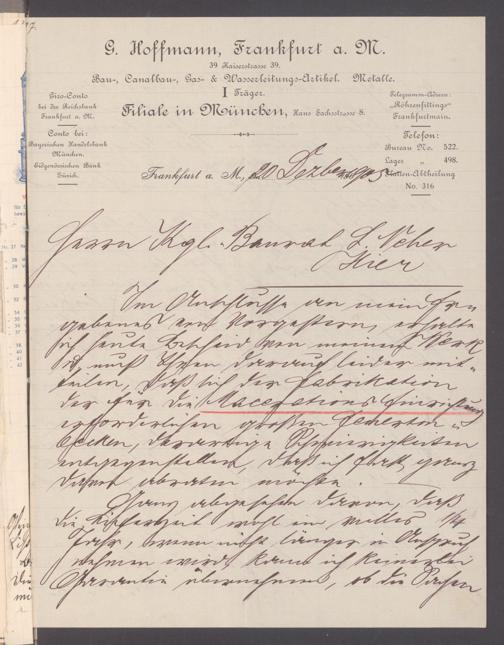 G. Hoffmann, Frankfurt a. M.
39 Kaiserstrasse 39.
Bau-, Canalbau-, Gas- & Wasserleitungs-Artikel. Metalle.
I Träger.
Filiale in München, Hans Sachsstrasse 8.
Giro-Conto
bei der Reichsbank
Frankfurt a. M.
Conto bei:
Bayerischen Handelsbank
München.
Eidgenössischen Bank
Zürich.
Telegramm-Adresse:
„Röhrenfittings“
Frankfurtmain.
Telefon:
Bureau No. 522.
Lager „ 498.
Abtheilung
No. 316
Frankfurt a. M., 20 Dezember 1905.
Herrn Kgl. Baurat L. Neher
Hier
Im Anschlusse an mein Er-
gebenes von Vorgestern, erhalte
ich heute Bescheid von meinem Werk
& muß Ihnen darauf leider mit-
teilen, daß sich der Fabrikation
der für die Macerations Einrichtung
erforderlichen großen
becken, derartige Schwierigkeiten
entgegenstellen, daß ich fast ganz
davon abraten möchte.
Ganz abgesehen davon, daß
die Lieferzeit wohl ein volles 1/4
Jahr, wenn nicht länger in Anspruch
nehmen wird, kann ich keinerlei
Garantie übernehmen, ob die Sachen